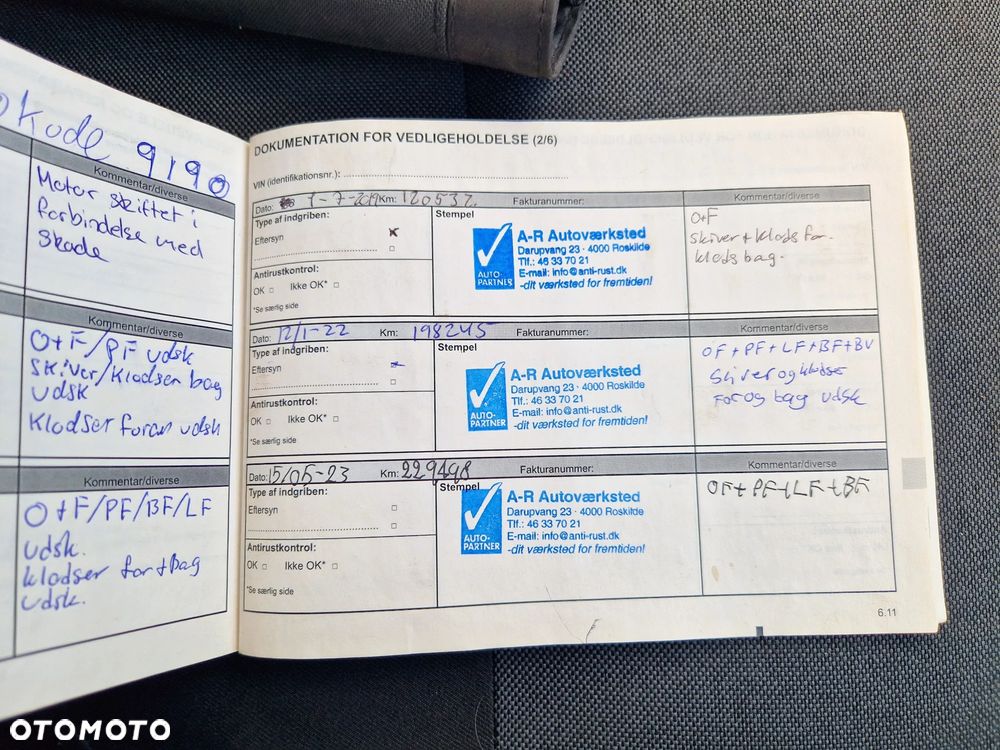 kode 9190
Kommentar/diverse
Motor skiftet i
forbindelse med
skade
Kommentar/diverse
O+F/PF udsk
skiver/Klodser bag
udsk
Klodser foran udsk
Kommentar/diverse
O+F/PF/BF/LF
udsk.
klodser for+bag
udsk.
DOKUMENTATION FOR VEDLIGEHOLDELSE (2/6)
VIN (identifikationsnr.):
Dato: 1-7-2019 Km: 120532 Fakturanummer: Kommentar/diverse
Type af indgriben:
Eftersyn
Antirustkontrol:
OK Ikke OK*
*Se særlig side
Stempel
AUTO-
PARTNER
A-R Autoværksted
Darupvang 23 · 4000 Roskilde
Tlf.: 46 33 70 21
E-mail: info@anti-rust.dk
-dit værksted for fremtiden!
O+F
skiver+klods for.
klods bag.
Dato: 12/1-22 Km: 198245 Fakturanummer: Kommentar/diverse
Type af indgriben:
Eftersyn
Antirustkontrol:
OK Ikke OK*
*Se særlig side
Stempel
AUTO-
PARTNER
A-R Autoværksted
Darupvang 23 · 4000 Roskilde
Tlf.: 46 33 70 21
E-mail: info@anti-rust.dk
-dit værksted for fremtiden!
OF+PF+LF+BF+BV
Skiver og klodser
for og bag udsk
Dato: 15/05-23 Km: 229498 Fakturanummer: Kommentar/diverse
Type af indgriben:
Eftersyn
Antirustkontrol:
OK Ikke OK*
*Se særlig side
Stempel
AUTO-
PARTNER
A-R Autoværksted
Darupvang 23 · 4000 Roskilde
Tlf.: 46 33 70 21
E-mail: info@anti-rust.dk
-dit værksted for fremtiden!
OF+PF+LF+BF
6.11
OTOMOTO